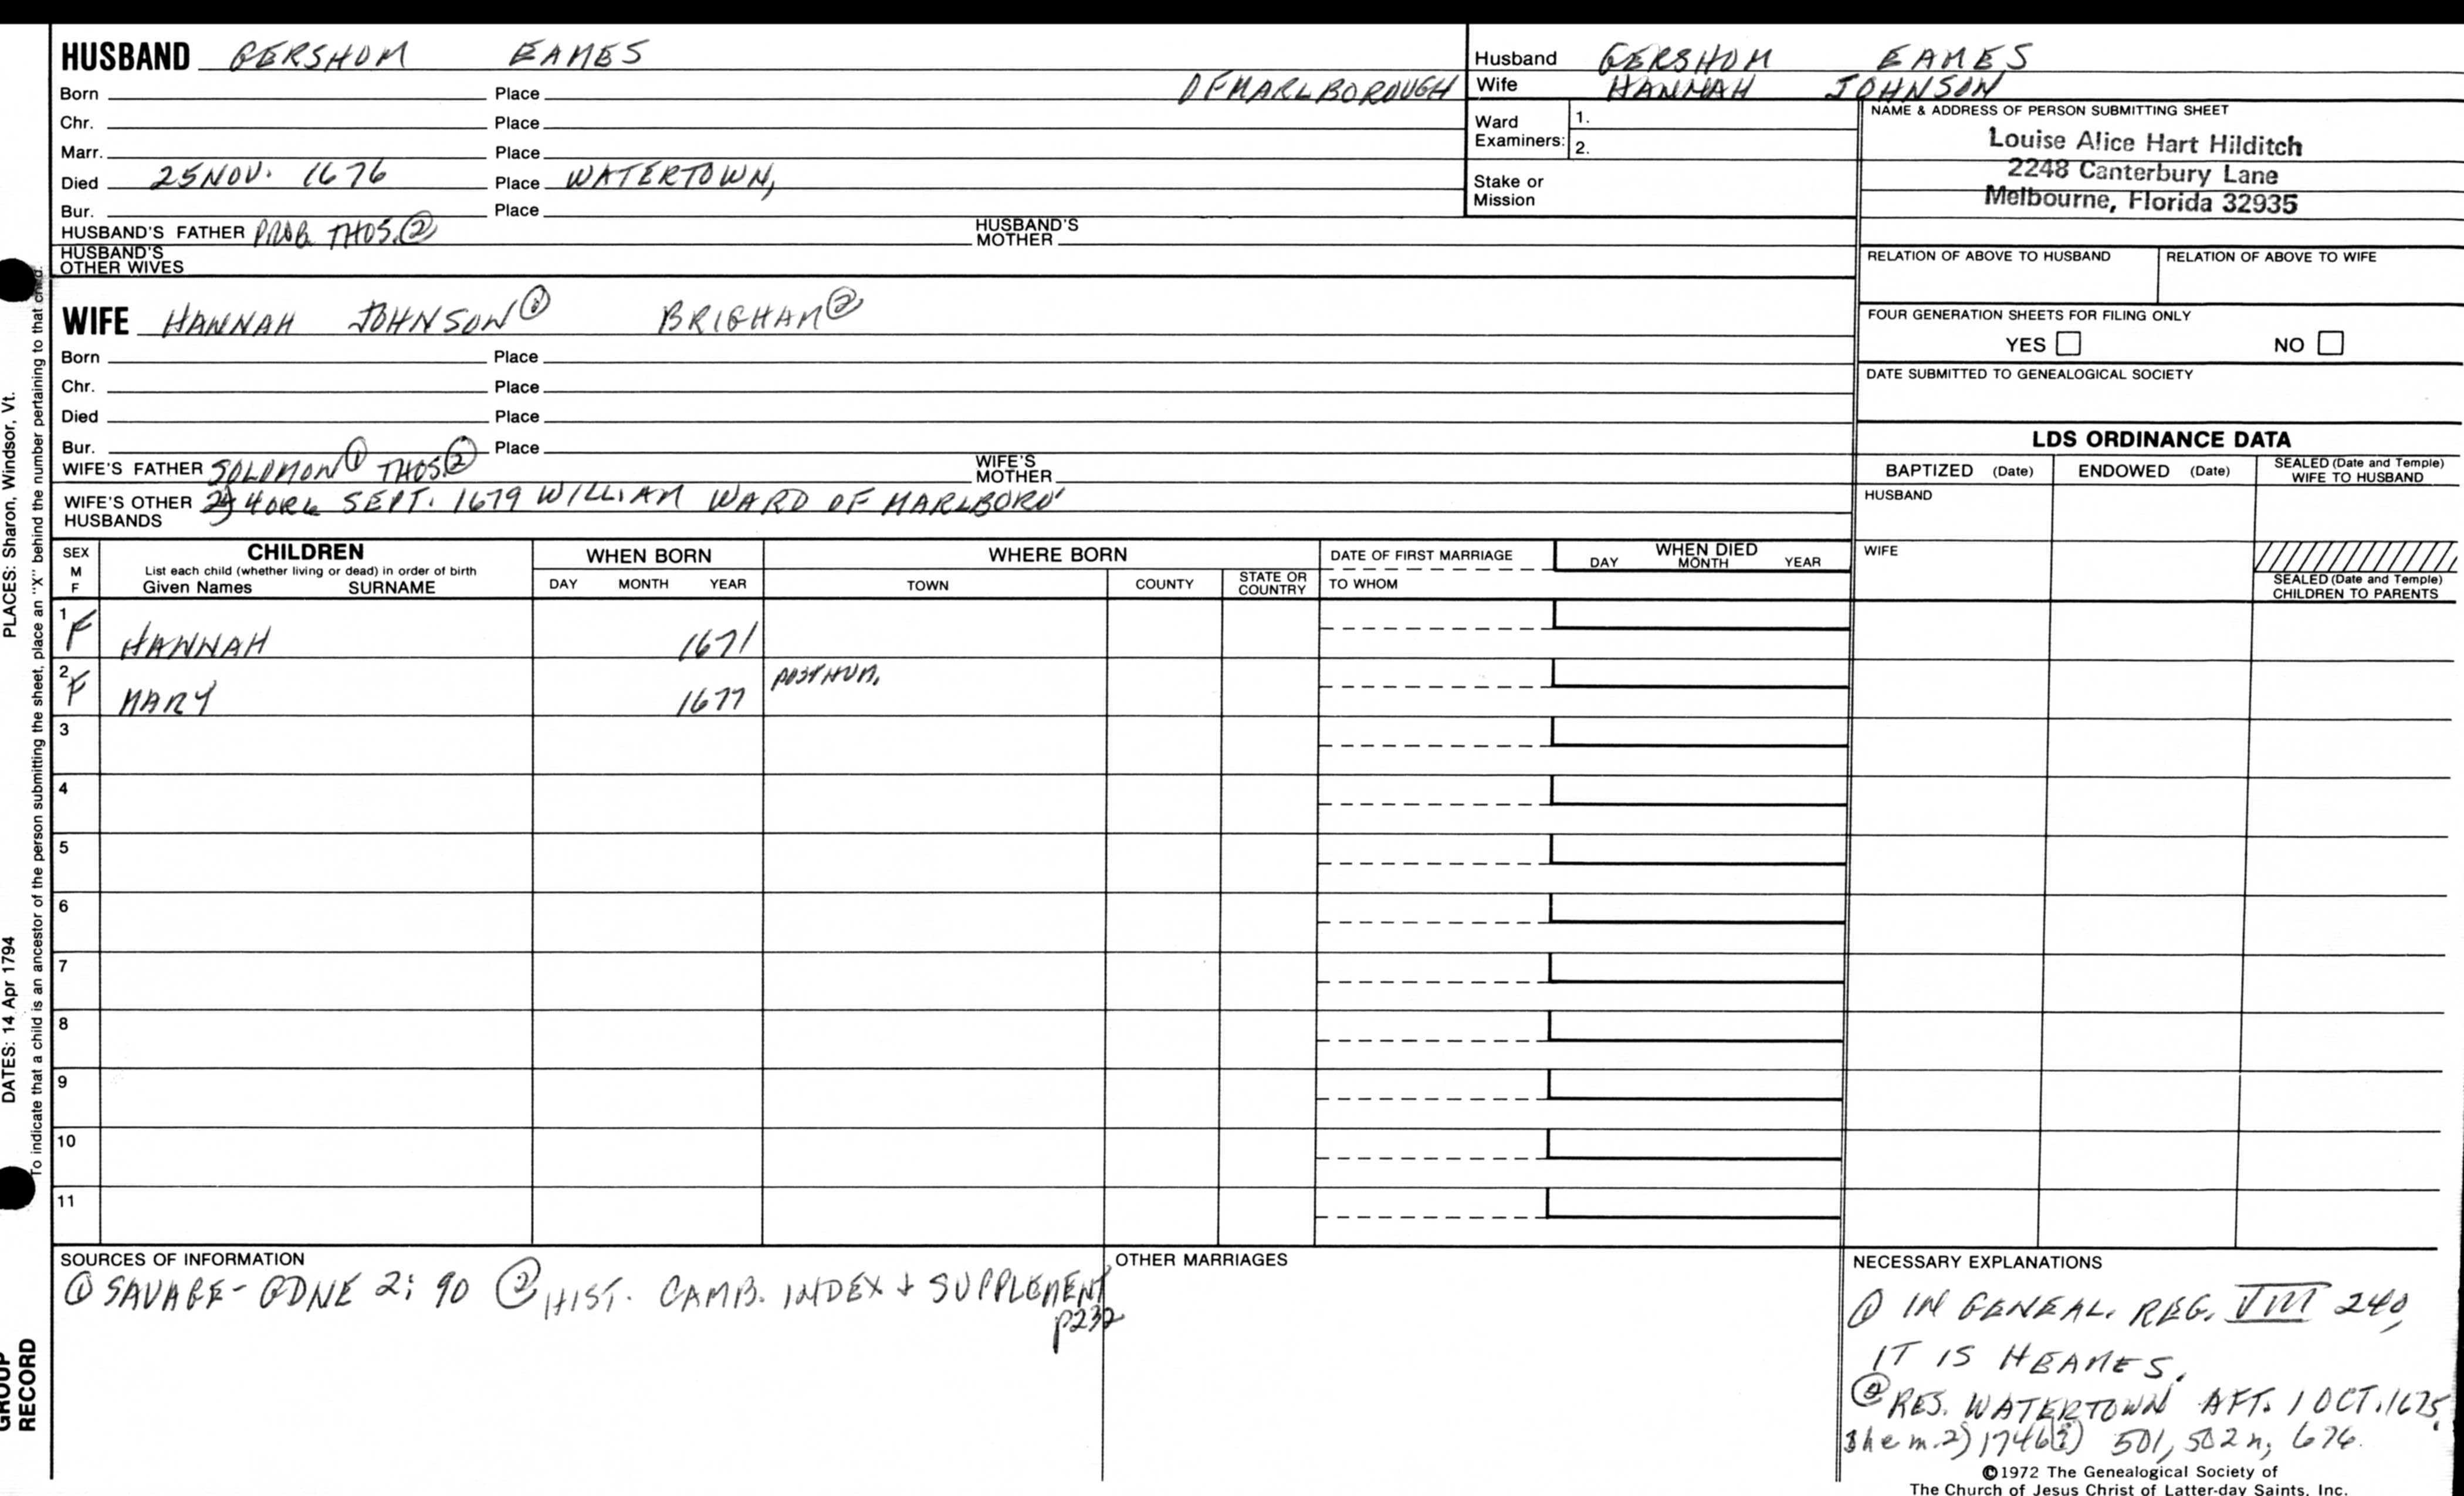 HUSBAND GERSHOM EAMES
Born Place OF MARLBOROUGH
Chr. Place
Marr. Place
Died 25 NOV. 1676 Place WATERTOWN,
Bur. Place
HUSBAND'S FATHER PROB. THOS. ② HUSBAND'S MOTHER
HUSBAND'S OTHER WIVES
Husband GERSHOM EAMES
Wife HANNAH JOHNSON
Ward Examiners: 1.
2.
Stake or Mission
NAME & ADDRESS OF PERSON SUBMITTING SHEET
Louise Alice Hart Hilditch
2248 Canterbury Lane
Melbourne, Florida 32935
RELATION OF ABOVE TO HUSBAND RELATION OF ABOVE TO WIFE
FOUR GENERATION SHEETS FOR FILING ONLY
YES NO
DATE SUBMITTED TO GENEALOGICAL SOCIETY
WIFE HANNAH JOHNSON ① BRIGHAM ②
Born Place
Chr. Place
Died Place
Bur. Place
WIFE'S FATHER SOLOMON ① THOS. ② WIFE'S MOTHER
WIFE'S OTHER HUSBANDS 2) 4 OR 6 SEPT. 1679 WILLIAM WARD OF MARLBORO'
LDS ORDINANCE DATA
BAPTIZED (Date) ENDOWED (Date) SEALED (Date and Temple) WIFE TO HUSBAND
HUSBAND
WIFE
SEALED (Date and Temple) CHILDREN TO PARENTS
SEX M F
CHILDREN
List each child (whether living or dead) in order of birth
Given Names SURNAME
WHEN BORN
DAY MONTH YEAR
WHERE BORN
TOWN COUNTY STATE OR COUNTRY
DATE OF FIRST MARRIAGE
TO WHOM
WHEN DIED
DAY MONTH YEAR
1 F HANNAH 1671
2 F MARY 1677 POSTHUM.
3
4
5
6
7
8
9
10
11
SOURCES OF INFORMATION
① SAVAGE - GDNE 2: 90 ② HIST. CAMB. INDEX + SUPPLEMENT
p232
OTHER MARRIAGES
NECESSARY EXPLANATIONS
① IN GENEAL. REG. VIII 240,
IT IS HEAMES.
② RES. WATERTOWN AFT. 1 OCT. 1675,
She m. 2) 501, 502 n, 676.
©1972 The Genealogical Society of
The Church of Jesus Christ of Latter-day Saints, Inc.
PLACES: Sharon, Windsor, Vt.
DATES: 14 Apr 1794
To indicate that a child is an ancestor of the person submitting the sheet, place an "X" behind the number pertaining to that child.
GROUP
RECORD